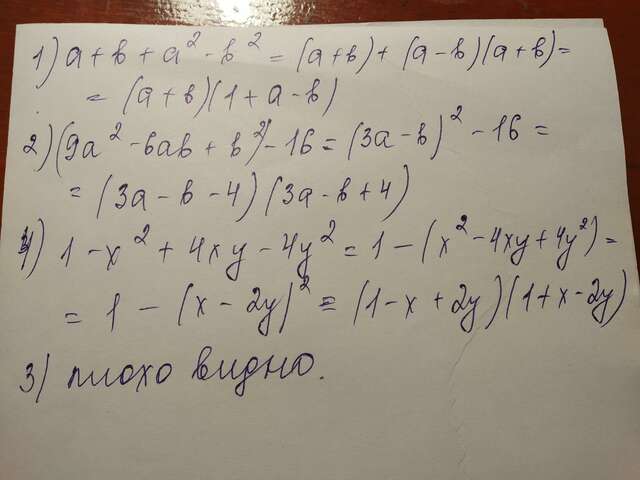 1) a + b + a² - b² = (a+b) + (a-b)(a+b) =
= (a+b)(1+a-b)
2) (9a² - 6ab + b²) - 16 = (3a-b)² - 16 =
= (3a - b - 4)(3a - b + 4)
4) 1 - x² + 4xy - 4y² = 1 - (x² - 4xy + 4y²) =
= 1 - (x - 2y)² = (1 - x + 2y)(1 + x - 2y)
3) плохо видно.